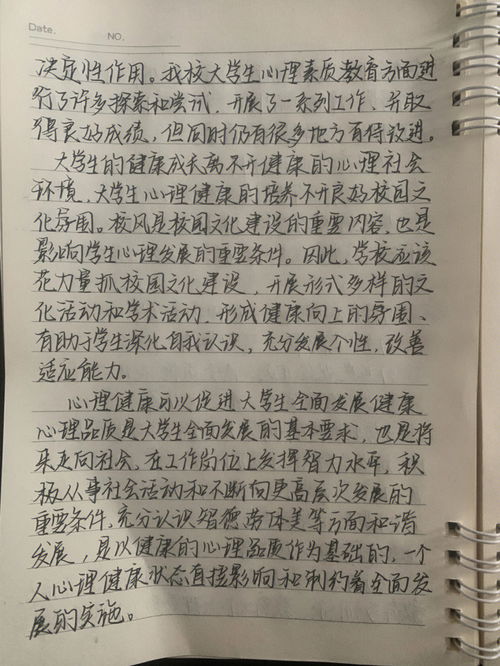 Date.
NO.
决定性作用。我校大学生心理素质教育方面进
行了许多探索和尝试，开展了一系列工作，并取
得良好成绩，但同时仍有很多地方有待改进。
大学生的健康成长离不开健康的心理社会
环境，大学生心理健康的培养不开良好校园文
化氛围。校风是校园文化建设的重要内容，也是
影响学生心理发展的重要条件。因此，学校应该
花力量抓校园文化建设，开展形式多样的文
化活动和学术活动，形成健康向上的氛围、
有助于学生深化自我认识，充分发展个性，改善
适应能力。
心理健康可以促进大学生全面发展健康
心理品质是大学生全面发展的基本要求，也是将
来走向社会，在工作岗位上发挥智力水平，积
极从事社会活动和不断向更高层次发展的
重要条件。充分认识智德劳体美等方面和谐
发展，是以健康的心理品质作为基础的，一个
人心理健康状态直接影响和制约着全面发
展的实施。